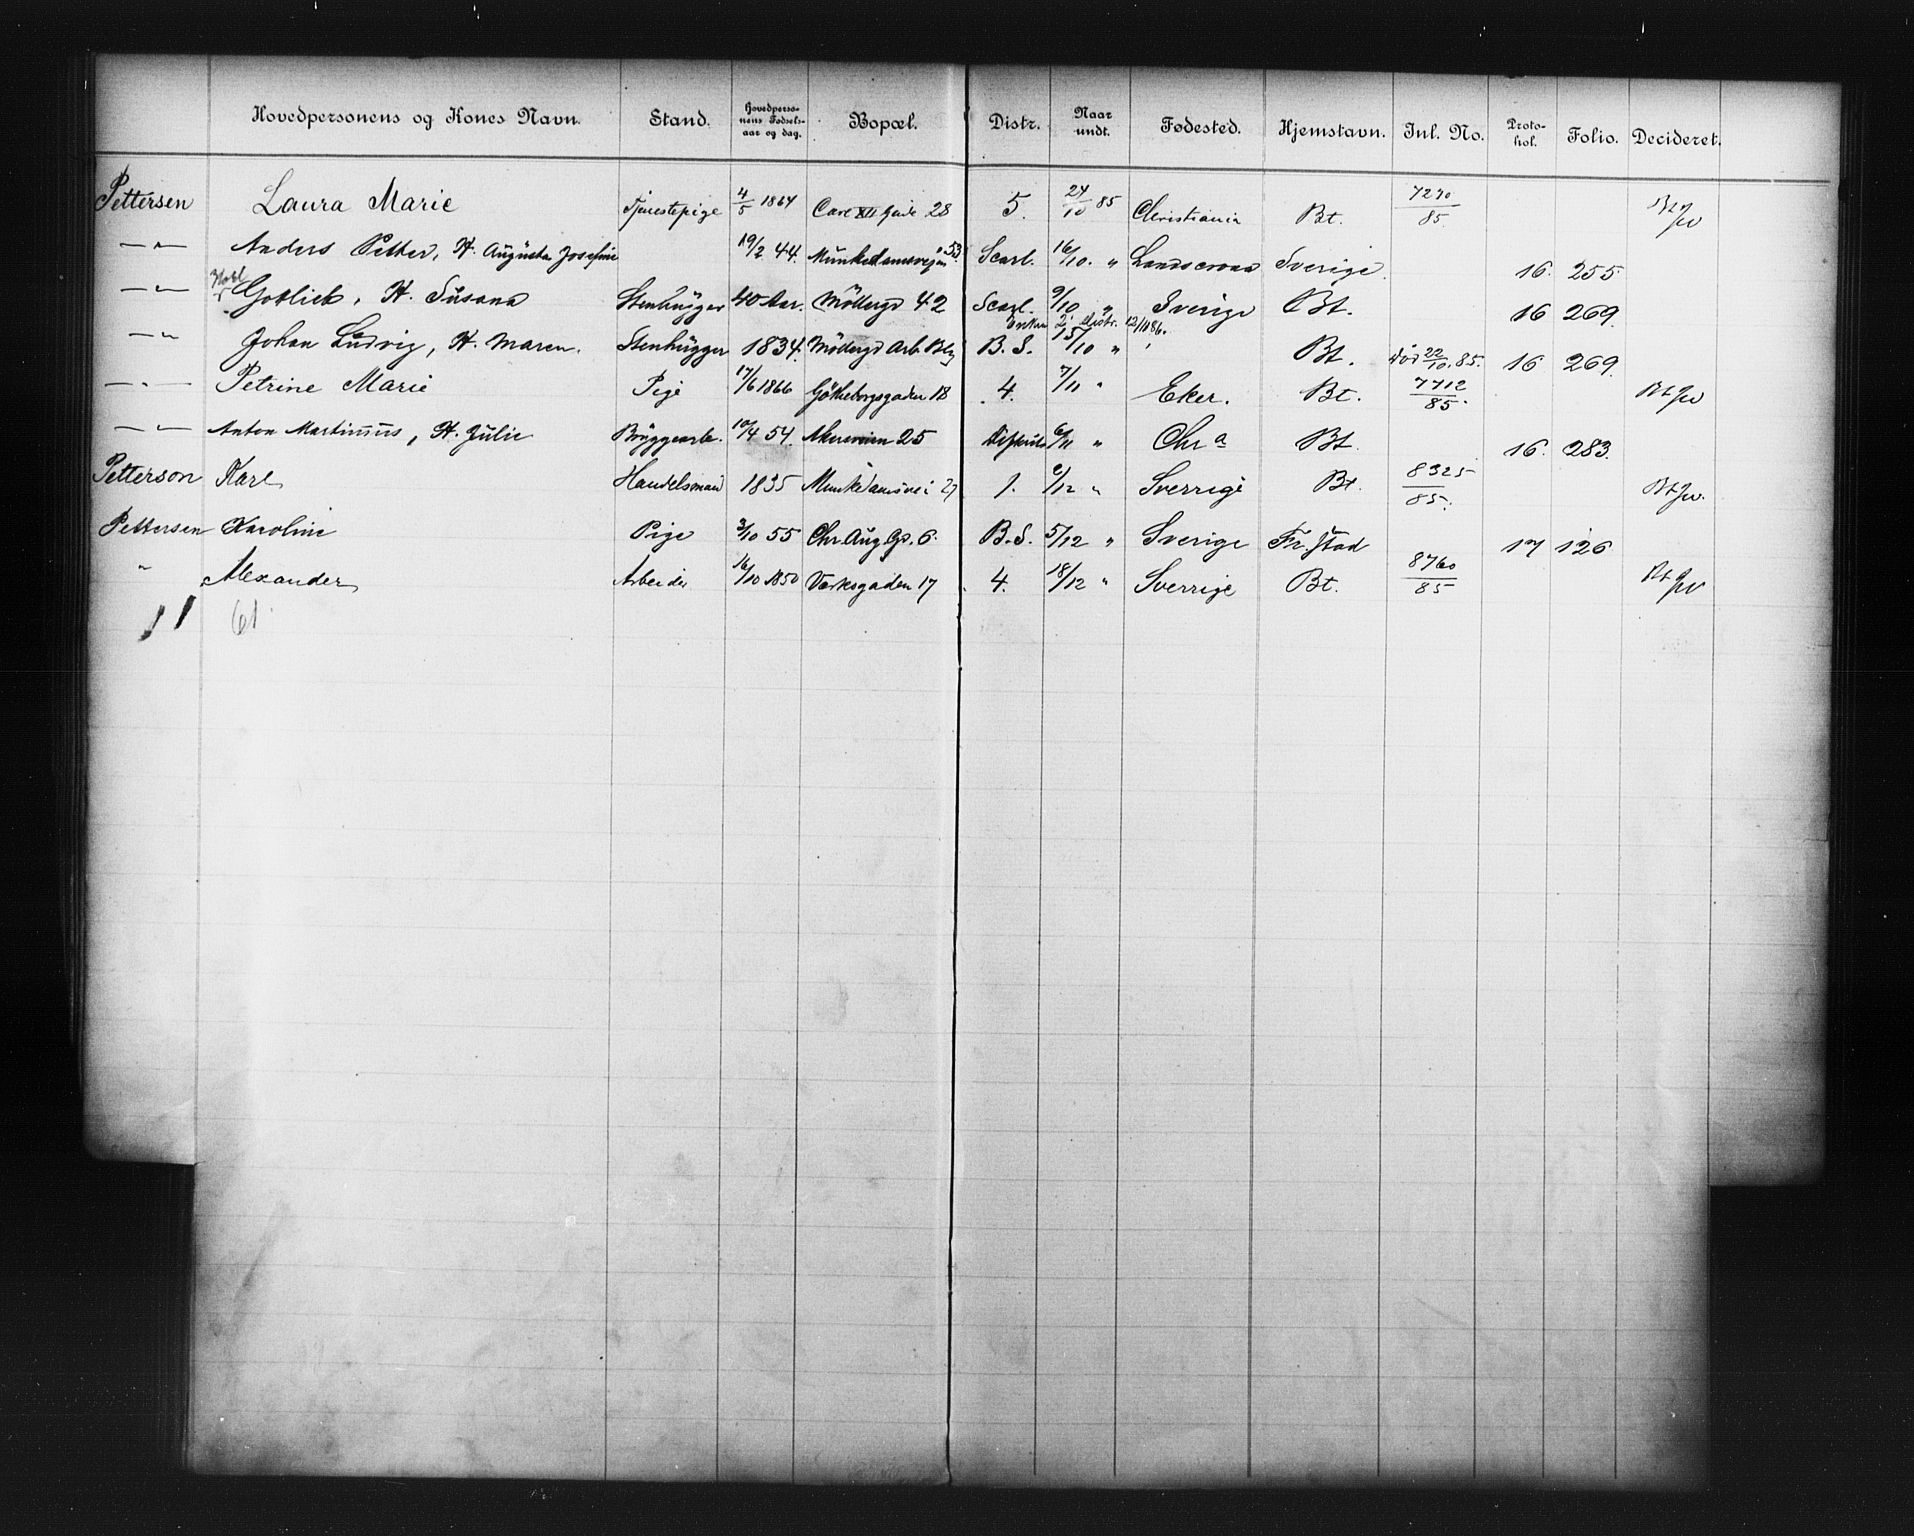 Hovedpersonens og Kones Navn. Stand. Hovedpersonens Fødselsaar og dag. Bopæl. Distr. Naar undt. Fødested. Hjemstavn. Inl. No. Protokol. Folio. Decideret.
Pettersen Laura Marie Tjenestepige 4/5 1864 Carl XII Gade 28 5. 24/10 85 Christiania Bt. 7290/85
—"— Anders Petter, H. Augusta Josefine 19/2 44. Munkedamsveien 53. Scarl. 16/10. " Landscrona Sverige. 16. 255
—"— Gotlieb, H. Susana Stenhugger 40 Aar. Møllergd 42 Scarl. 9/10 " Sverige Bt. 16 269.
Enken 2 Distr. 12/1 86.
—"— Johan Ludvig, H. Maren. Stenhugger 1834. Møllergd Arb. B. S. 15/10 " Bt. død 22/10. 85. 16 269.
—"— Petrine Marie Pige 17/6 1866 Götheborgsgaden 18 4. 7/11 " Eker. Bt. 7712/85.
—"— Anton Martinius, H. Julie Bryggearb. 10/4 54. Akersveien 25 6/11 " Chr a Bt. 16. 283.
Petterson Karl Handelsmand 1835 Munkedamsvei 27 1. 2/12 " Sverrige Bt. 8325/85.
Pettersen Karoline Pige 3/10 55 Chr. Aug. Gd. 6. B. S. 5/12 " Sverige Fr. stad 17 126
" Alexander Arbeider 16/10 1850 Værksgaden 17 4. 18/12 " Sverrige Bt. 8760/85
61.